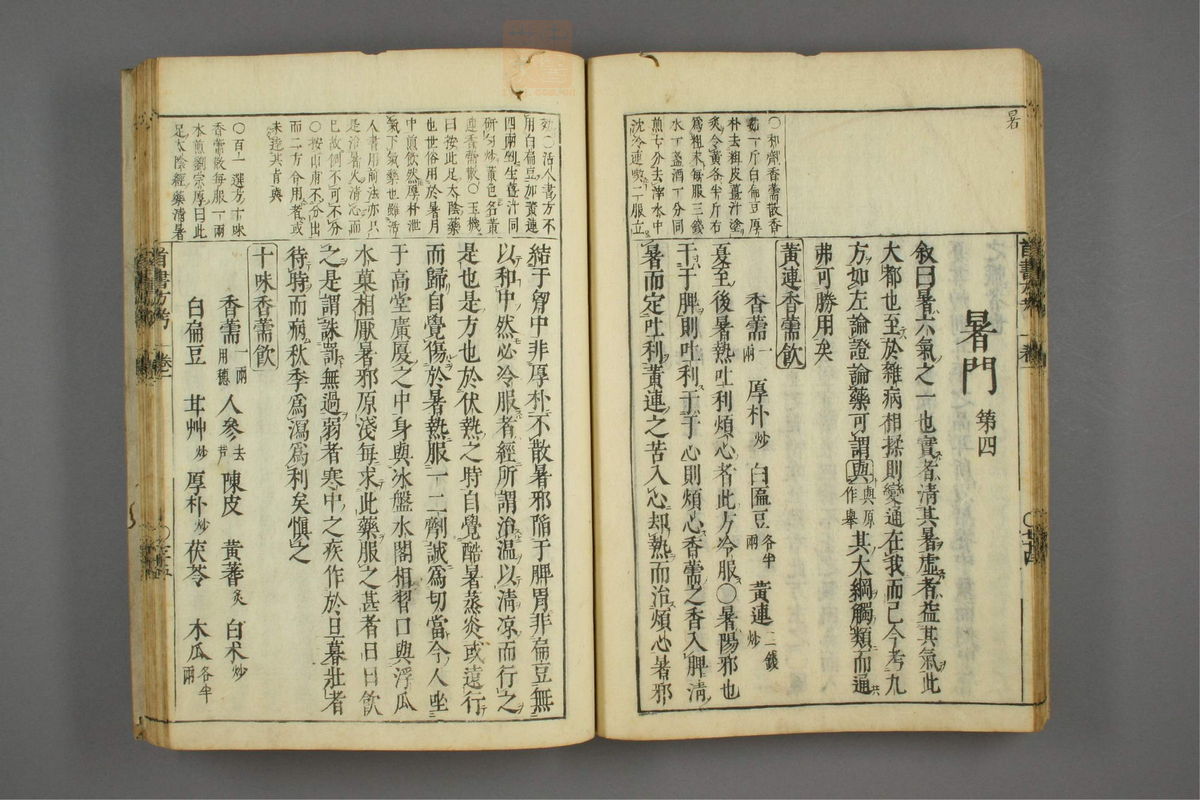 暑
○和劑香薷散香
薷一斤白扁豆厚
朴去粗皮薑汁塗
炙令黃各半斤右
爲粗末每服三錢
水一盞酒一分同
煎七分去滓水中
沈冷連喫二服立
首書方考　卷一
暑門 第四
敘曰暑六氣之一也實者清其暑虛者益其氣此
大都也至於雜病相揉則變通在我而已今考九
方如左論證論藥可謂與與原作舉其大綱觸類而通
弗可勝用矣
黃連香薷飲
香薷一兩 厚朴炒 白匾豆各半兩 黃連二錢炒
夏至後暑熱吐利煩心者此方冷服○暑陽邪也
干于脾則吐利干于心則煩心香薷之香入脾清
暑而定吐利黃連之苦入心却熱而治煩心暑邪
効○活人書方不
用白扁豆加黃連
四兩剉生薑汁同
研勻炒黃色名黃
連香薷散○玉機
曰按此足太陰藥
也世俗用於暑月
中煎飲然厚朴泄
氣下氣藥也雖活
人書用前法亦只
是治暑天清心而
已故例不可不分
而二方合用者或
未達其旨與
○百一選方十味
香薷散每服一兩
水煎劉宗厚曰此
足太陰經藥清暑
結于胷中非厚朴不散暑邪陷于脾胃非扁豆無
以和中然必冷服者經所謂治温以清凉而行之
是也是方也於伏熱之時自覺酷暑蒸炎或遠行
而歸自覺傷於暑熱服一二劑誠爲切當今人坐
于高堂廣厦之中身與冰盤水閣相習口與浮瓜
水菓相厭暑邪原淺每求此藥服之甚者日日飲
之是謂誅罰無過弱者寒中之疾作於旦暮壯者
待時而病秋季爲瀉爲利矣慎之
十味香薷飲
香薷一兩用穗 人參去 陳皮 黃蓍炙 白朮炒
白扁豆 甘艸炒 厚朴炒 茯苓 木瓜各半兩
首書方考　卷一